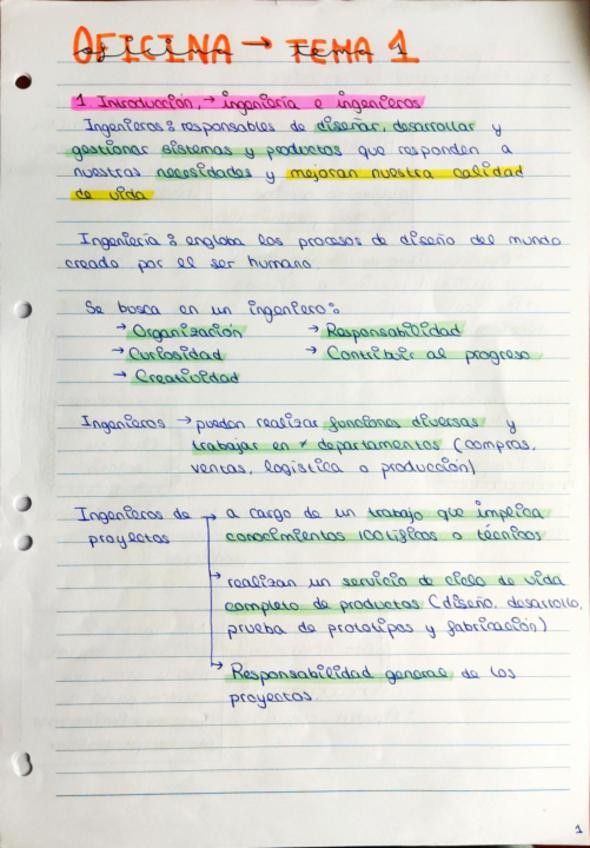 OFICINA → TEMA 1
oficina tema 1
1. Introducción, → ingeniería e ingenieros
Ingenieros: responsables de diseñar, desarrollar y
gestionar sistemas y productos que responden a
nuestras necesidades y mejoran nuestra calidad
de vida
Ingeniería: engloba los procesos de diseño del mundo
creado por el ser humano.
Se busca en un ingeniero:
→ Organización → Responsabilidad
→ Curiosidad → Contribuir al progreso
→ Creatividad
Ingenieros → pueden realizar funciones diversas y
trabajar en ≠ departamentos (compras,
ventas, logística o producción)
Ingenieros de → a cargo de un trabajo que implica
proyectos conocimientos científicos o técnicos
→ realizan un servicio de ciclo de vida
completo de productos (diseño, desarrollo,
prueba de prototipos y fabricación)
→ Responsabilidad general de los
proyectos.
1